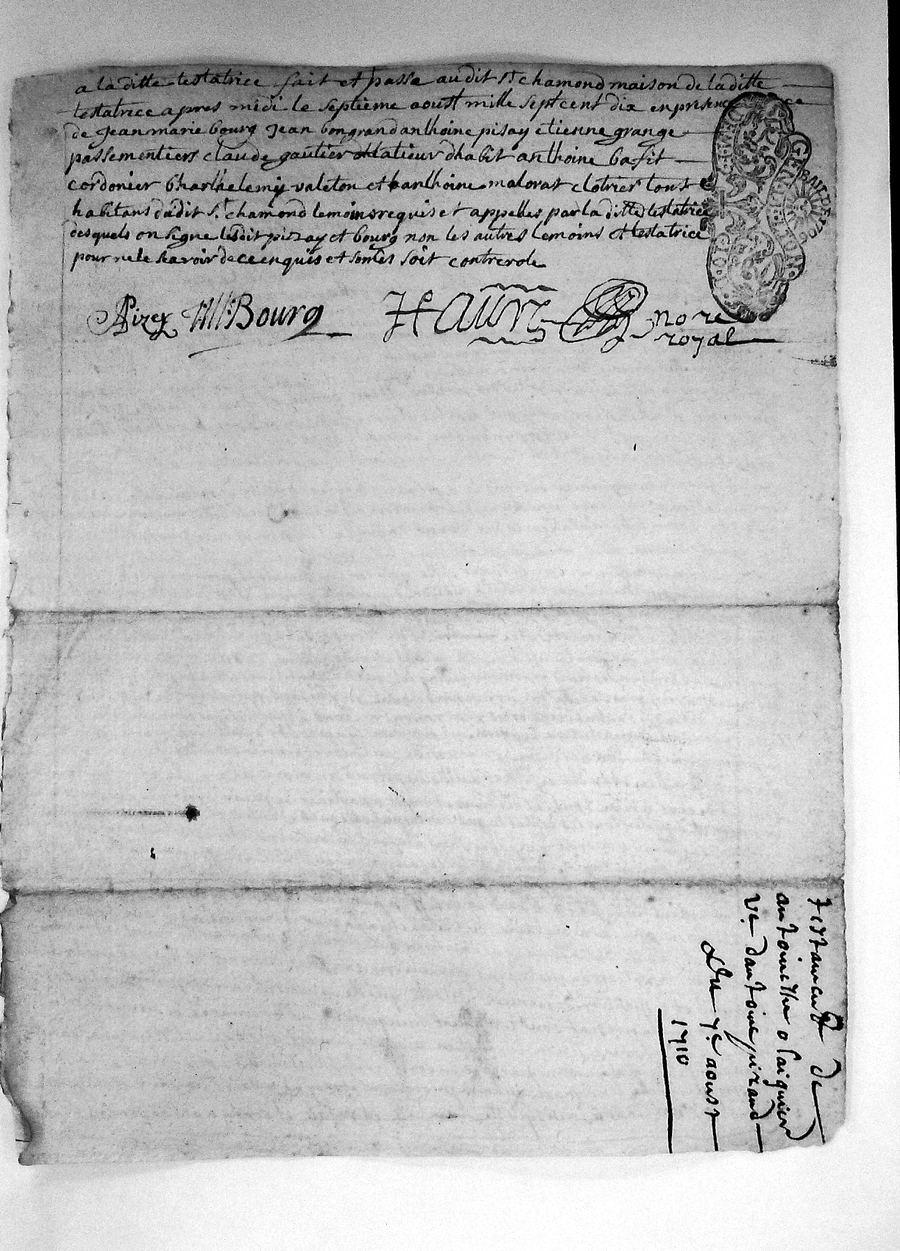 a la ditte testatrice fait et passé audit st chamond maison de la ditte
testatrice apres midi le septieme aoust mille sept cent dix en presence
de jean marie bourg jean bongrand anthoine pisay etienne grange
passementiers claude gautier tatieur dhabit anthoine basit
cordonier barthelemy valeton et anthoine malorat clotrier tous
habitans dudit st chamond temoins requis et appelles par la ditte testatrice
desquels on signe lesdit pizay et bourg non les autres temoins et testatrice
pour ne le scavoir de ce enquis et soit controle
Pizey Bourg
nore
royal
GE
testament de
antoinette
ve dantoine pizand
du 7e aoust
1710